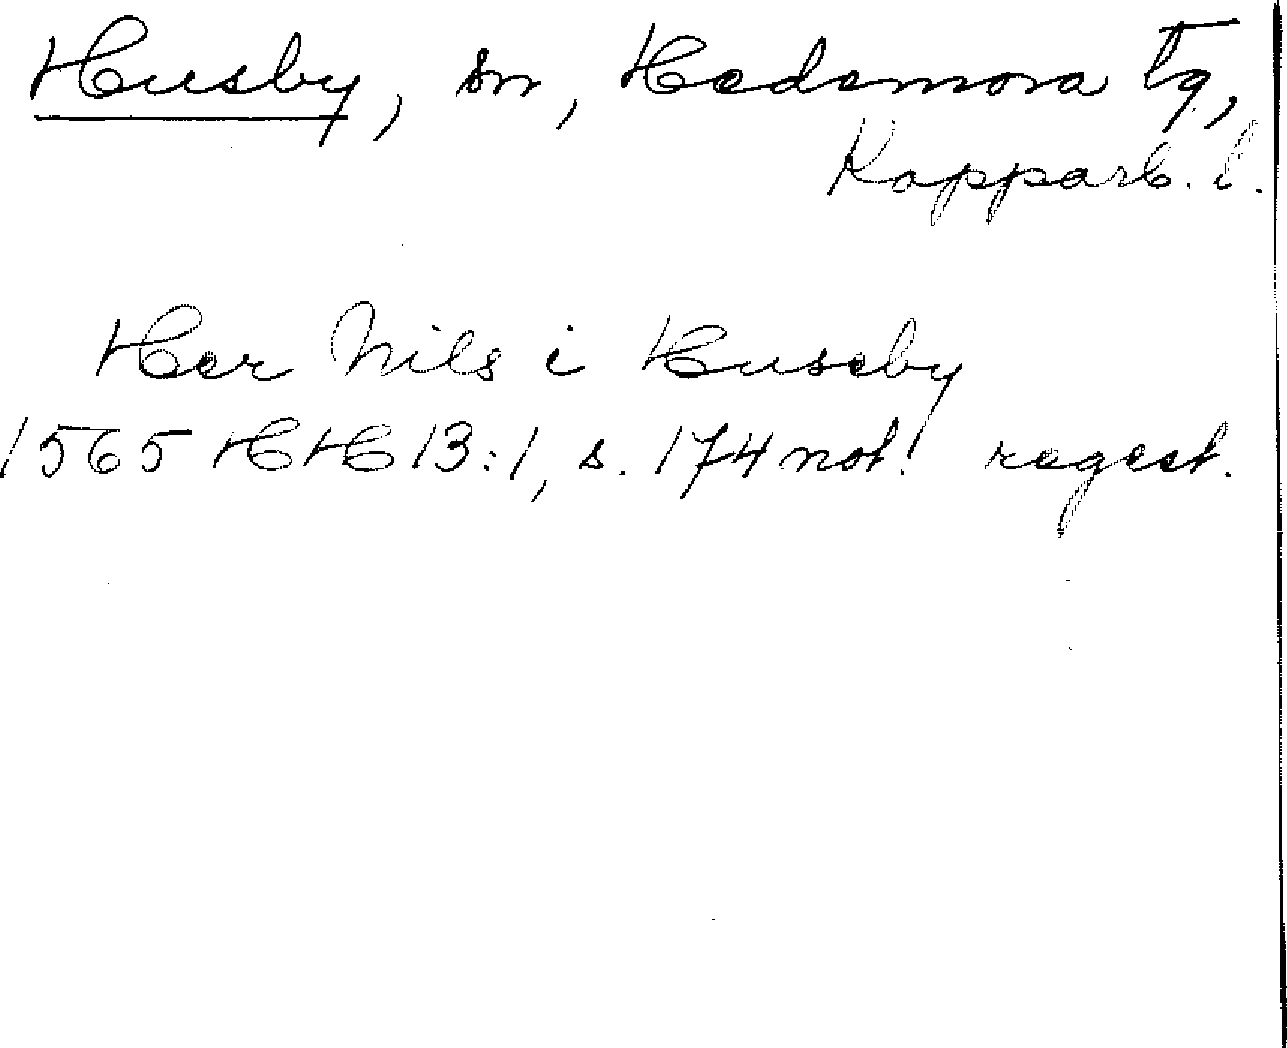 Husby, sn, Hedemora tg,
Kopparb. l.
Her Nils i Huseby
1565 HH 13:1, s. 174 not! regest.